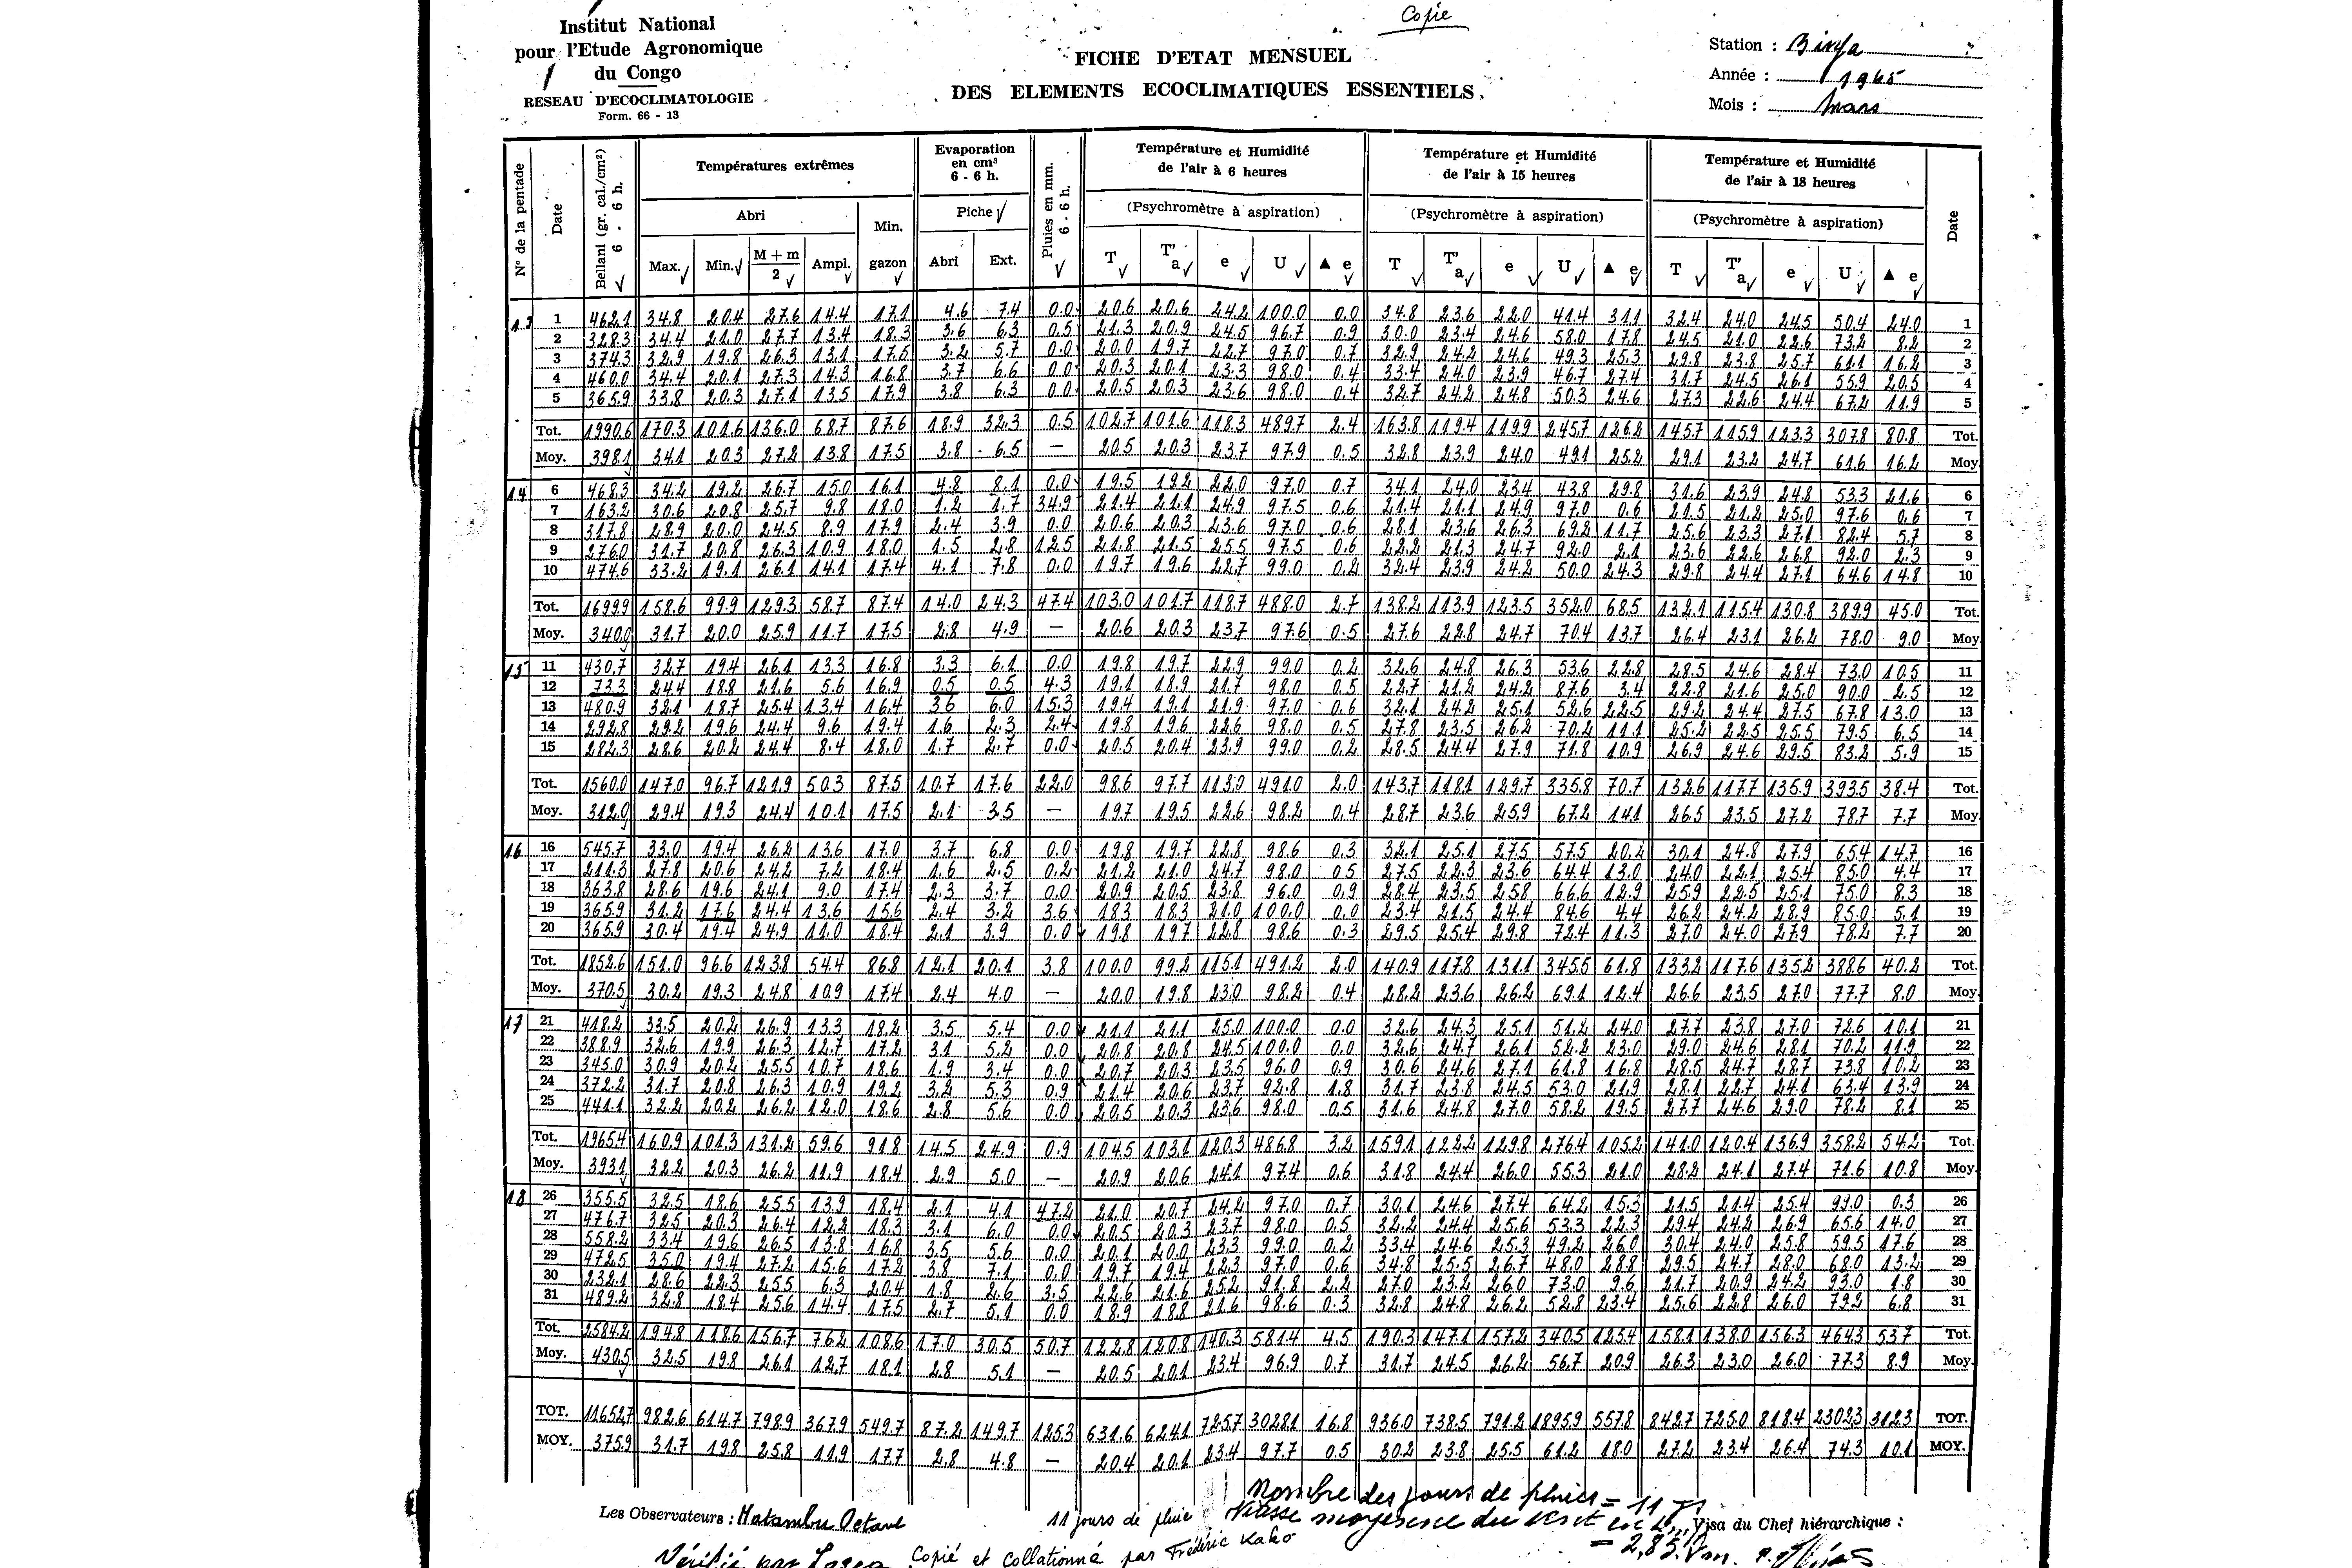 Copie
Institut National
pour l'Etude Agronomique
du Congo
RESEAU D'ECOCLIMATOLOGIE
Form. 66 - 13
FICHE D'ETAT MENSUEL
DES ELEMENTS ECOCLIMATIQUES ESSENTIELS.
Station : Binga
Année : 1965
Mois : Mars
N° de la pentade Date Bellani (gr. cal./cm²) 6 - 6 h. Températures extrêmes Evaporation en cm³ 6 - 6 h. Pluies en mm. 6 - 6 h. Température et Humidité de l'air à 6 heures Température et Humidité de l'air à 15 heures Température et Humidité de l'air à 18 heures Date
Abri Min. gazon Piche (Psychromètre à aspiration) (Psychromètre à aspiration) (Psychromètre à aspiration)
Max. Min. M + m / 2 Ampl. Abri Ext. T T'a e U ▲ e T T'a e U ▲ e T T'a e U ▲ e
13 1 462.1 34.8 20.4 27.6 14.4 17.1 4.6 7.4 0.0 20.6 20.6 24.2 100.0 0.0 34.8 23.6 22.0 41.4 31.1 32.4 24.0 24.5 50.4 24.0 1
2 328.3 34.4 21.0 27.7 13.4 18.3 3.6 6.3 0.5 21.3 20.9 24.5 96.7 0.9 30.0 23.4 24.6 58.0 17.8 24.5 21.0 22.6 73.2 8.2 2
3 374.3 32.9 19.8 26.3 13.1 17.5 3.2 5.7 0.0 20.0 19.7 22.7 97.0 0.7 32.9 24.2 24.6 49.3 25.3 29.8 23.8 25.7 61.1 16.2 3
4 460.0 34.4 20.1 27.3 14.3 16.8 3.7 6.6 0.0 20.3 20.1 23.3 98.0 0.4 33.4 24.0 23.9 46.7 27.4 31.7 24.5 26.1 55.9 20.5 4
5 365.9 33.8 20.3 27.1 13.5 17.9 3.8 6.3 0.0 20.5 20.3 23.6 98.0 0.4 32.7 24.2 24.8 50.3 24.6 27.3 22.6 24.4 67.2 11.9 5
Tot. 1990.6 170.3 101.6 136.0 68.7 87.6 18.9 32.3 0.5 102.7 101.6 118.3 489.7 2.4 163.8 119.4 119.9 245.7 126.2 145.7 115.9 123.3 307.8 80.8 Tot.
Moy. 398.1 34.1 20.3 27.2 13.8 17.5 3.8 6.5 — 20.5 20.3 23.7 97.9 0.5 32.8 23.9 24.0 49.1 25.2 29.1 23.2 24.7 61.6 16.2 Moy.
14 6 468.3 34.2 19.2 26.7 15.0 16.1 4.8 8.1 0.0 19.5 19.2 22.0 97.0 0.7 34.1 24.0 23.4 43.8 29.8 31.6 23.9 24.8 53.3 21.6 6
7 163.2 30.6 20.8 25.7 9.8 18.0 1.2 1.7 34.9 21.4 21.1 24.9 97.5 0.6 21.4 21.1 24.9 97.0 0.6 21.5 21.2 25.0 97.6 0.6 7
8 317.8 28.9 20.0 24.5 8.9 17.9 2.4 3.9 0.0 20.6 20.3 23.6 97.0 0.6 28.1 23.6 26.3 69.2 11.7 25.6 23.3 27.1 82.4 5.7 8
9 276.0 31.7 20.8 26.3 10.9 18.0 1.5 2.8 12.5 21.8 21.5 25.5 97.5 0.6 22.2 21.3 24.7 92.0 2.1 23.6 22.6 26.8 92.0 2.3 9
10 474.6 33.2 19.1 26.1 14.1 17.4 4.1 7.8 0.0 19.7 19.6 22.7 99.0 0.2 32.4 23.9 24.2 50.0 24.3 29.8 24.4 27.1 64.6 14.8 10
Tot. 1699.9 158.6 99.9 129.3 58.7 87.4 14.0 24.3 47.4 103.0 101.7 118.7 488.0 2.7 138.2 113.9 123.5 352.0 68.5 132.1 115.4 130.8 389.9 45.0 Tot.
Moy. 340.0 31.7 20.0 25.9 11.7 17.5 2.8 4.9 — 20.6 20.3 23.7 97.6 0.5 27.6 22.8 24.7 70.4 13.7 26.4 23.1 26.2 78.0 9.0 Moy.
15 11 430.7 32.7 19.4 26.1 13.3 16.8 3.3 6.1 0.0 19.8 19.7 22.9 99.0 0.2 32.6 24.8 26.3 53.6 22.8 28.5 24.6 28.4 73.0 10.5 11
12 73.3 24.4 18.8 21.6 5.6 16.9 0.5 0.5 4.3 19.1 18.9 21.7 98.0 0.5 22.7 21.2 24.2 87.6 3.4 22.8 21.6 25.0 90.0 2.5 12
13 480.9 32.1 18.7 25.4 13.4 16.4 3.6 6.0 15.3 19.4 19.1 21.9 97.0 0.6 32.1 24.2 25.1 52.6 22.5 29.2 24.4 27.5 67.8 13.0 13
14 292.8 29.2 19.6 24.4 9.6 19.4 1.6 2.3 2.4 19.8 19.6 22.6 98.0 0.5 27.8 23.5 26.2 70.2 11.1 25.2 22.5 25.5 79.5 6.5 14
15 282.3 28.6 20.2 24.4 8.4 18.0 1.7 2.7 0.0 20.5 20.4 23.9 99.0 0.2 28.5 24.4 27.9 71.8 10.9 26.9 24.6 29.5 83.2 5.9 15
Tot. 1560.0 147.0 96.7 121.9 50.3 87.5 10.7 17.6 22.0 98.6 97.7 113.0 491.0 2.0 143.7 118.1 129.7 335.8 70.7 132.6 117.7 135.9 393.5 38.4 Tot.
Moy. 312.0 29.4 19.3 24.4 10.1 17.5 2.1 3.5 — 19.7 19.5 22.6 98.2 0.4 28.7 23.6 25.9 67.2 14.1 26.5 23.5 27.2 78.7 7.7 Moy.
16 16 545.7 33.0 19.4 26.2 13.6 17.0 3.7 6.8 0.0 19.8 19.7 22.8 98.6 0.3 32.1 25.1 27.5 57.5 20.2 30.1 24.8 27.9 65.4 14.7 16
17 211.3 27.8 20.6 24.2 7.2 18.4 1.6 2.5 0.2 21.2 21.0 24.7 98.0 0.5 27.5 22.3 23.6 64.4 13.0 24.0 22.1 25.4 85.0 4.4 17
18 363.8 28.6 19.6 24.1 9.0 17.4 2.3 3.7 0.0 20.9 20.5 23.8 96.0 0.9 28.4 23.5 25.8 66.6 12.9 25.9 22.5 25.1 75.0 8.3 18
19 365.9 31.2 17.6 24.4 13.6 15.6 2.4 3.2 3.6 18.3 18.3 21.0 100.0 0.0 23.4 21.5 24.4 84.6 4.4 26.2 24.2 28.9 85.0 5.1 19
20 365.9 30.4 19.4 24.9 11.0 18.4 2.1 3.9 0.0 19.8 19.7 22.8 98.6 0.3 29.5 25.4 29.8 72.4 11.3 27.0 24.0 27.9 78.2 7.7 20
Tot. 1852.6 151.0 96.6 123.8 54.4 86.8 12.1 20.1 3.8 100.0 99.2 115.1 491.2 2.0 140.9 117.8 131.1 345.5 61.8 133.2 117.6 135.2 388.6 40.2 Tot.
Moy. 370.5 30.2 19.3 24.8 10.9 17.4 2.4 4.0 — 20.0 19.8 23.0 98.2 0.4 28.2 23.6 26.2 69.1 12.4 26.6 23.5 27.0 77.7 8.0 Moy.
17 21 418.2 33.5 20.2 26.9 13.3 18.2 3.5 5.4 0.0 21.1 21.1 25.0 100.0 0.0 32.6 24.3 25.1 51.2 24.0 27.7 23.8 27.0 72.6 10.1 21
22 388.9 32.6 19.9 26.3 12.7 17.2 3.1 5.2 0.0 20.8 20.8 24.5 100.0 0.0 32.6 24.7 26.1 52.2 23.0 29.0 24.6 28.1 70.2 11.9 22
23 345.0 30.9 20.2 25.5 10.7 18.6 1.9 3.4 0.0 20.7 20.3 23.5 96.0 0.9 30.6 24.6 27.1 61.8 16.8 28.5 24.7 28.7 73.8 10.2 23
24 372.2 31.7 20.8 26.3 10.9 19.2 3.2 5.3 0.9 21.4 20.6 23.7 92.8 1.8 31.7 23.8 24.5 53.0 21.9 28.1 22.7 24.1 63.4 13.9 24
25 441.1 32.2 20.2 26.2 12.0 18.6 2.8 5.6 0.0 20.5 20.3 23.6 98.0 0.5 31.6 24.8 27.0 58.2 19.5 27.7 24.6 29.0 78.2 8.1 25
Tot. 1965.4 160.9 101.3 131.2 59.6 91.8 14.5 24.9 0.9 104.5 103.1 120.3 486.8 3.2 159.1 122.2 129.8 276.4 105.2 141.0 120.4 136.9 358.2 54.2 Tot.
Moy. 393.1 32.2 20.3 26.2 11.9 18.4 2.9 5.0 — 20.9 20.6 24.1 97.4 0.6 31.8 24.4 26.0 55.3 21.0 28.2 24.1 27.4 71.6 10.8 Moy.
18 26 355.5 32.5 18.6 25.5 13.9 18.4 2.1 4.1 47.2 21.0 20.7 24.2 97.0 0.7 30.1 24.6 27.4 64.2 15.3 21.5 21.4 25.4 99.0 0.3 26
27 476.7 32.5 20.3 26.4 12.2 18.3 3.1 6.0 0.0 20.5 20.3 23.7 98.0 0.5 32.2 24.4 25.6 53.3 22.3 29.4 24.2 26.9 65.6 14.0 27
28 558.2 33.4 19.6 26.5 13.8 16.8 3.5 5.6 0.0 20.1 20.0 23.3 99.0 0.2 33.4 24.6 25.3 49.2 26.0 30.4 24.0 25.8 59.5 17.6 28
29 472.5 35.0 19.4 27.2 15.6 17.2 3.8 7.1 0.0 19.7 19.4 22.3 97.0 0.6 34.8 25.5 26.7 48.0 28.8 29.5 24.7 28.0 68.0 13.2 29
30 232.1 28.6 22.3 25.5 6.3 20.4 1.8 2.6 3.5 22.6 21.6 25.2 91.8 2.2 27.0 23.2 26.0 73.0 9.6 21.7 20.9 24.2 93.0 1.8 30
31 489.2 32.8 18.4 25.6 14.4 17.5 2.7 5.1 0.0 18.9 18.8 21.6 98.6 0.3 32.8 24.8 26.2 52.8 23.4 25.6 22.8 26.0 79.2 6.8 31
Tot. 2584.2 194.8 118.6 156.7 76.2 108.6 17.0 30.5 50.7 122.8 120.8 140.3 581.4 4.5 190.3 147.1 157.2 340.5 125.4 158.1 138.0 156.3 464.3 53.7 Tot.
Moy. 430.5 32.5 19.8 26.1 12.7 18.1 2.8 5.1 — 20.5 20.1 23.4 96.9 0.7 31.7 24.5 26.2 56.7 20.9 26.3 23.0 26.0 77.3 8.9 Moy.
TOT. 11652.7 982.6 614.7 798.9 367.9 549.7 87.2 149.7 125.3 631.6 624.1 725.7 3028.1 16.8 936.0 738.5 791.2 1895.9 557.8 842.7 725.0 818.4 2302.3 312.3 TOT.
MOY. 375.9 31.7 19.8 25.8 11.9 17.7 2.8 4.8 — 20.4 20.1 23.4 97.7 0.5 30.2 23.8 25.5 61.2 18.0 27.2 23.4 26.4 74.3 10.1 MOY.
Nombre des jours de pluies = 11
Les Observateurs : Matambu Octave
11 jours de pluie Vitesse moyenne du vent en
Visa du Chef hiérarchique :
= 2,85
Vérifié par Copié et collationné par Frédéric Kako